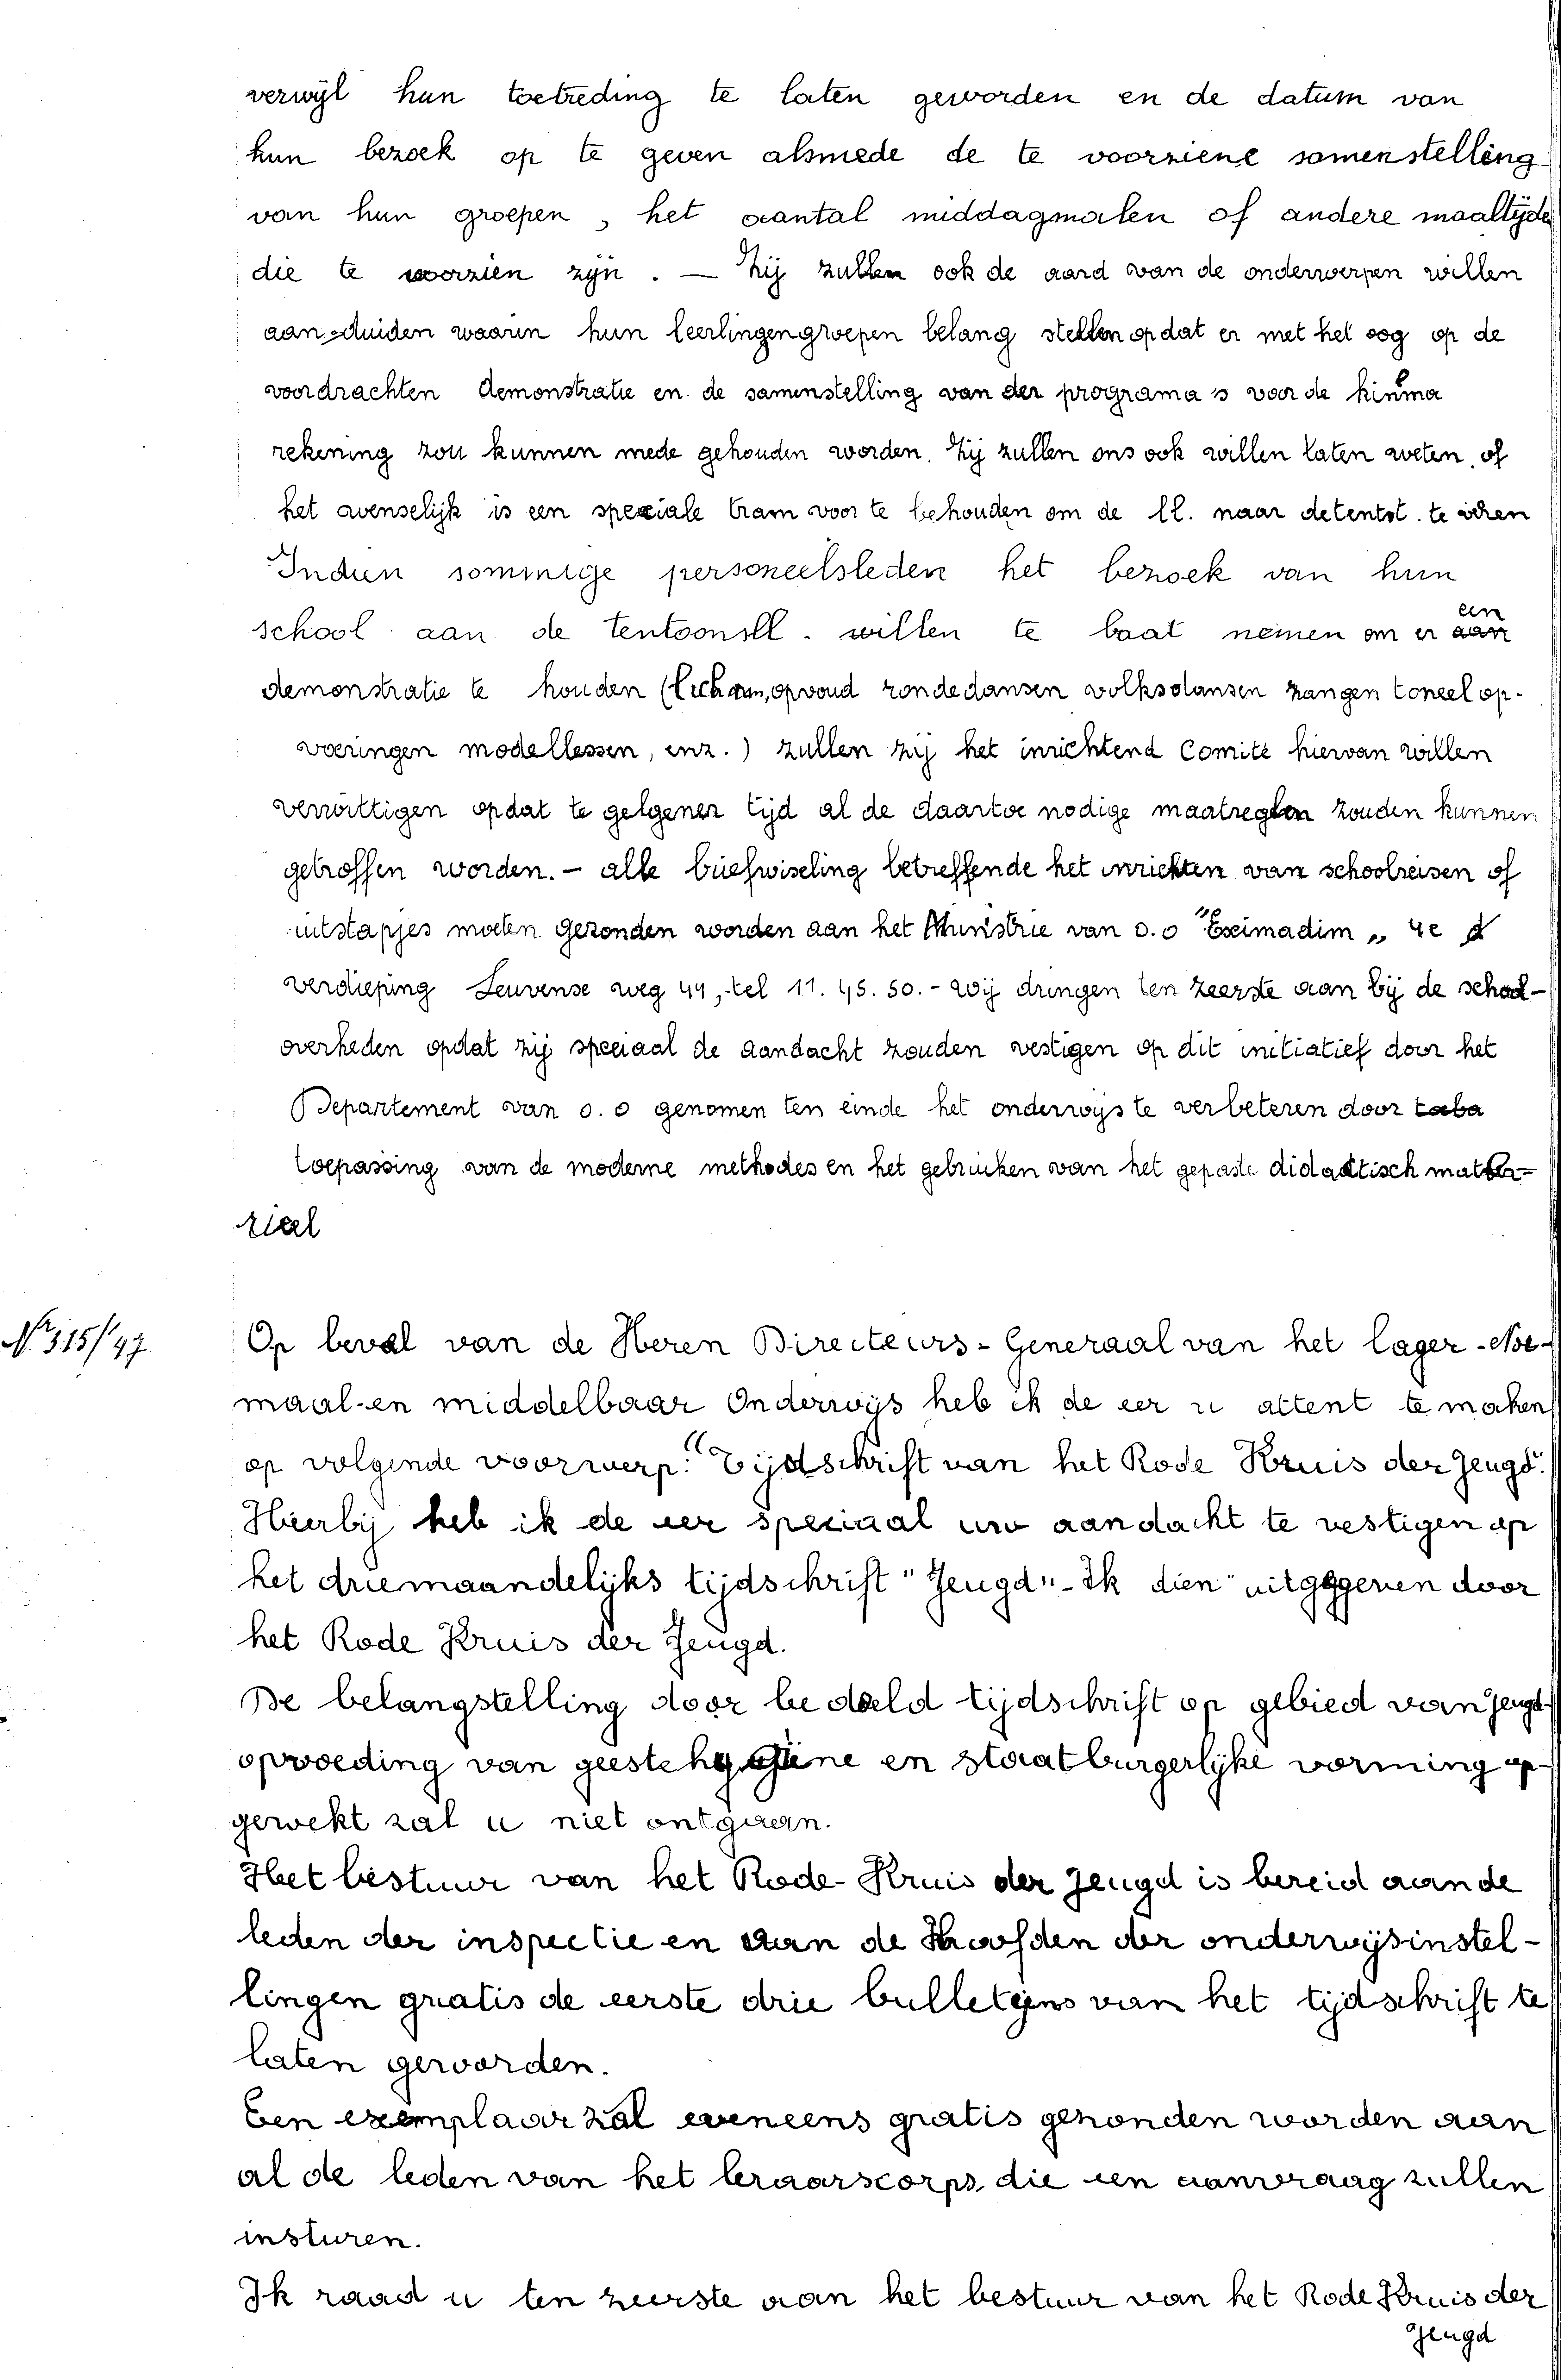 verwijl hun toetreding te laten geworden en de datum van
hun bezoek op te geven alsmede de te voorziene samenstelling
van hun groepen, het aantal middagmalen of andere maaltijde
die te voorzien zijn. — Zij zullen ook de aard van de onderwerpen willen
aanduiden waarin hun leerlingengroepen belang stellen opdat er met het oog op de
voordrachten demonstratie en de samenstelling van der programa's voor de kinema
rekening zou kunnen mede gehouden worden. Zij zullen ons ook willen laten weten, of
het wenselijk is een speciale tram voor te behouden om de ll. naar de tentst. te
Indien sommige personeelsleden het bezoek van hun
school aan de tentoonsll. willen te baat nemen om er een
demonstratie te houden (licham, opvoud rondedansen volksdansen zangen toneelop-
voeringen modellessen, enz.) zullen zij het inrichtend Comité hiervan willen
verwittigen opdat te gelgener tijd al de daartoe nodige maatreglen zouden kunnen
getroffen worden. - alle briefwiseling betreffende het inrichten van schoolreisen of
uitstapjes moeten gezonden worden aan het Ministrie van O.O "Eximadim„ 4e
verdieping Leuvense weg 44, tel 11.45.50. - Wij dringen ten zeerste aan bij de school-
overheden opdat zij speciaal de aandacht zouden vestigen op dit initiatief door het
Departement van O.O genomen ten einde het onderwijs te verbeteren door
toepassing van de moderne methodes en het gebruiken van het gepaste didactisch mate-
rieel
Nr 315/47
Op beval van de Heren Directeurs-Generaal van het lager-Noe-
maal-en middelbaar Onderwijs heb ik de eer u attent te maken
op volgende voorwerp: "Tijdschrift van het Rode Kruis der Jeugd".
Hierbij heb ik de eer speciaal uw aandacht te vestigen op
het driemaandelijks tijdschrift "Jeugd"-Ik dien" uitgegeven door
het Rode Kruis der Jeugd.
De belangstelling door bedoeld tijdschrift op gebied van jeugd
opvoeding van geestehygiëne en staatburgerlijke vorming op-
gewekt zal u niet ontgaan.
Het bestuur van het Rode-Kruis der Jeugd is bereid aan de
leden der inspectie en aan de Hoofden der onderwijsinstel-
lingen gratis de eerste drie bulletijns van het tijdschrift te
laten geworden.
Een exemplaar zal eveneens gratis gezonden worden aan
al de leden van het leraarscorps die een aanvraag zullen
insturen.
Ik raad u ten zeerste aan het bestuur van het Rode Kruis der
Jeugd